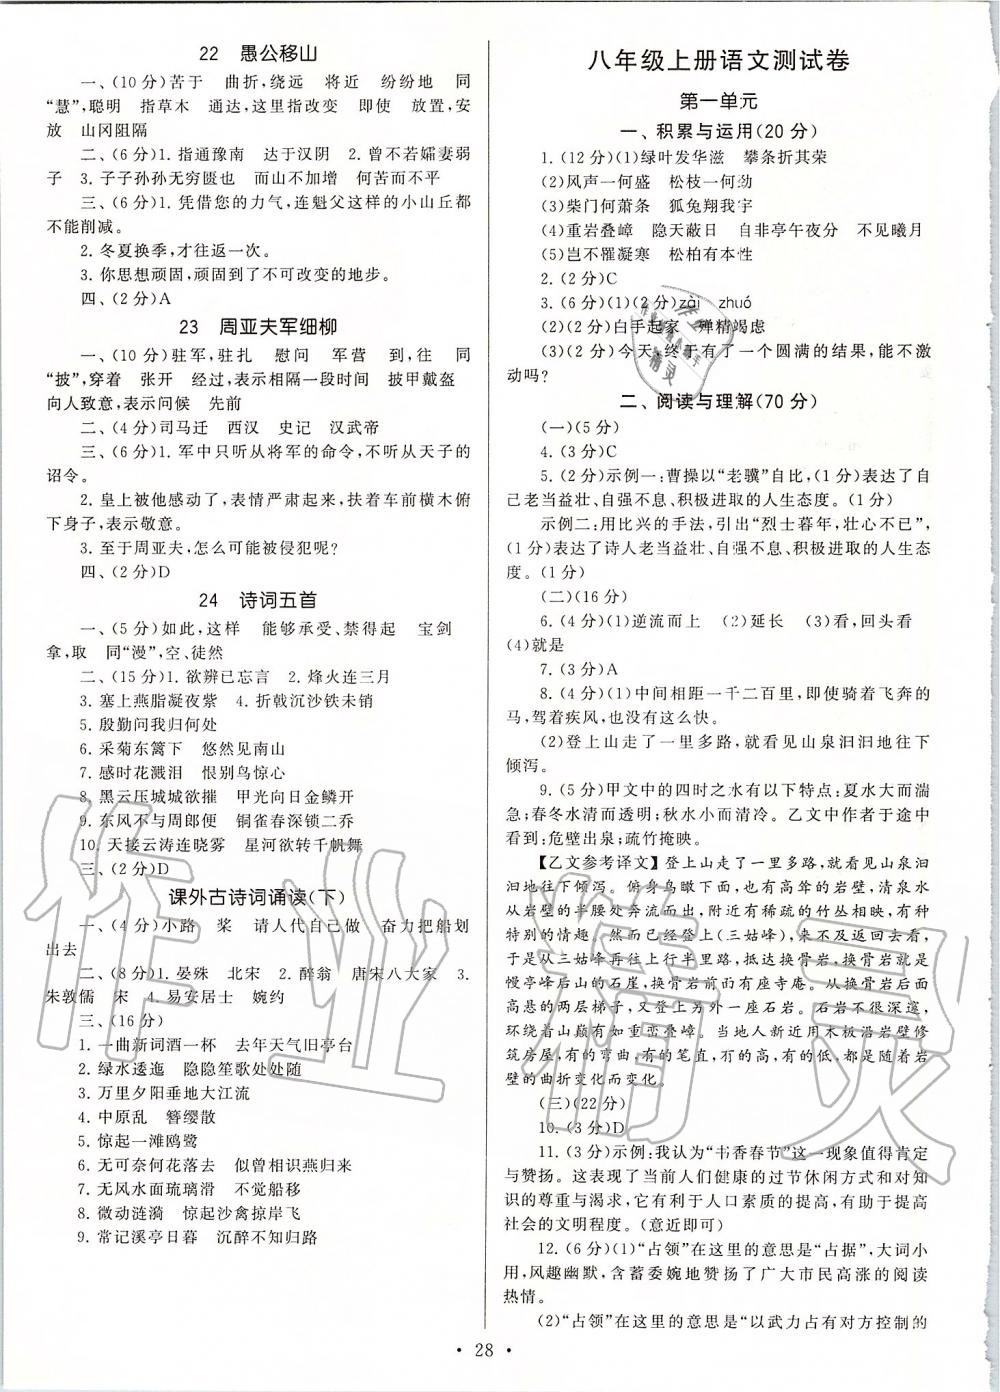 22　愚公移山
一、(10分)苦于　曲折,绕远　将近　纷纷地　同
“慧”,聪明　指草木　通达,这里指改变　即使　放置,安
放　山冈阻隔
二、(6分)1. 指通豫南　达于汉阴　2. 曾不若孀妻弱
子　3. 子子孙孙无穷匮也　而山不加增　何苦而不平
三、(6分)1. 凭借您的力气,连魁父这样的小山丘都
不能削减。
2. 冬夏换季,才往返一次。
3. 你思想顽固,顽固到了不可改变的地步。
四、(2分)A
23　周亚夫军细柳
一、(10分)驻军,驻扎　慰问　军营　到,往　同
“披”,穿着　张开　经过,表示相隔一段时间　披甲戴盔
向人致意,表示问候　先前
二、(4分)司马迁　西汉　史记　汉武帝
三、(6分)1. 军中只听从将军的命令,不听从天子的
诏令。
2. 皇上被他感动了,表情严肃起来,扶着车前横木俯
下身子,表示敬意。
3. 至于周亚夫,怎么可能被侵犯呢?
四、(2分)D
24　诗词五首
一、(5分)如此,这样　能够承受、禁得起　宝剑
拿,取　同“漫”,空、徒然
二、(15分)1. 欲辨已忘言　2. 烽火连三月
3. 塞上燕脂凝夜紫　4. 折戟沉沙铁未销
5. 殷勤问我归何处
6. 采菊东篱下　悠然见南山
7. 感时花溅泪　恨别鸟惊心
8. 黑云压城城欲摧　甲光向日金鳞开
9. 东风不与周郎便　铜雀春深锁二乔
10. 天接云涛连晓雾　星河欲转千帆舞
三、(2分)D
课外古诗词诵读(下)
一、(4分)小路　桨　请人代自己做　奋力把船划
出去
二、(8分)1. 晏殊　北宋　2. 醉翁　唐宋八大家　3.
朱敦儒　宋　4. 易安居士　婉约
三、(16分)
1. 一曲新词酒一杯　去年天气旧亭台
2. 绿水逶迤　隐隐笙歌处处随
3. 万里夕阳垂地大江流
4. 中原乱　簪缨散
5. 惊起一滩鸥鹭
6. 无可奈何花落去　似曾相识燕归来
7. 无风水面琉璃滑　不觉船移
8. 微动涟漪　惊起沙禽掠岸飞
9. 常记溪亭日暮　沉醉不知归路
八年级上册语文测试卷
第一单元
一、积累与运用(20分)
1. (12分)(1)绿叶发华滋　攀条折其荣
(2)风声一何盛　松枝一何劲
(3)柴门何萧条　狐兔翔我宇
(4)重岩叠嶂　隐天蔽日　自非亭午夜分　不见曦月
(5)岂不罹凝寒　松柏有本性
2. (2分)C
3. (6分)(1)(2分)zài　zhuó
(2)(2分)白手起家　殚精竭虑
(3)(2分)今天,终于有了一个圆满的结果,能不激
动吗?
二、阅读与理解(70分)
(一)(5分)
4. (3分)C
5. (2分)示例一:曹操以“老骥”自比,(1分)表达了自
己老当益壮、自强不息、积极进取的人生态度。(1分)
示例二:用比兴的手法,引出“烈士暮年,壮心不已”,
(1分)表达了诗人老当益壮、自强不息、积极进取的人生态
度。(1分)
(二)(16分)
6. (4分)(1)逆流而上　(2)延长　(3)看,回头看
(4)就是
7. (3分)A
8. (4分)(1)中间相距一千二百里,即使骑着飞奔的
马,驾着疾风,也没有这么快。
(2)登上山走了一里多路,就看见山泉汩汩地往下
倾泻。
9. (5分)甲文中的四时之水有以下特点:夏水大而湍
急;春冬水清而透明;秋水小而清冷。乙文中作者于途中
看到:危壁出泉;疏竹掩映。
【乙文参考译文】登上山走了一里多路,就看见山泉汩
汩地往下倾泻。俯身鸟瞰下方,有高耸的岩壁,清泉水
从岩壁的半腰处奔流而出,附近有稀疏的竹丛相映,有种
特别的情趣。然而已经登上(三姑峰),来不及返回去看
了。从三姑峰再往上行半里多路,抵达换骨岩,换骨岩就是
慢亭峰后山的石崖,换骨岩前面有座寺庵。从换骨岩后面
高悬的两层梯子,又另外登上一座石岩。石岩不很深邃,
环绕着山巅有如重峦叠嶂。当地人新近用木板沿岩壁修
筑房屋,有的弯曲,有的笔直,不高的,高的,都是随着岩
壁的曲折变化而变化。
(三)(22分)
10. (3分)D
11. (3分)示例:我认为“书香春节”这一现象值得肯定
与赞扬。这表现了当前人们健康的过节休闲方式和对知
识的尊重与渴求,它有利于人口素质的提高,有助于提高
社会的文明程度。(意近即可)
12. (6分)(1)“占领”在这里的意思是“占据”,大词小
用,风趣幽默,含蓄委婉地赞扬了广大市民高涨的阅读
热情。
(2)“占领”在这里的意思是“以武力占有对方控制的
• 28 •
作业精灵